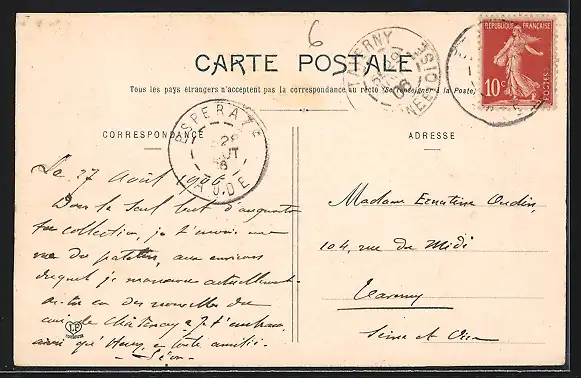 6
CARTE POSTALE
Tous les pays étrangers n'acceptent pas la correspondance au recto (Se renseigner à la Poste)
RÉPUBLIQUE FRANÇAISE
10c
POSTES
TAVERNY
SEINE ET OISE
ESPERAZA
28
AOUT
06
AUDE
CORRESPONDANCE
ADRESSE
Le 27 Août 1906
Dans le seul but d'augmenter
ta collection, je t'envoie une
vue des
aux environs
duquel je manœuvre actuellement.
as-tu eu des nouvelles du
de Chatenay? Je t'embrasse
ainsi qu' Henry, en toute amitié.
Léon
Madame Ernestine Oudin,
104, rue du Midi
Taverny
Seine et Oise